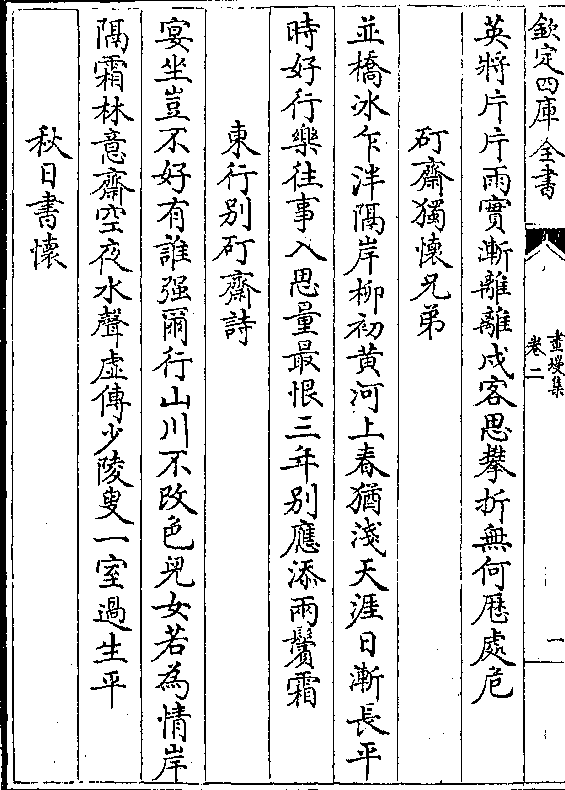 欽定四庫全書
畫墁集
卷二
一
英將片片雨實漸離離戍客思攀折無何厯處危
矴齋獨懷兄弟
並橋冰乍泮隔岸柳初黄河上春猶淺天涯日漸長平
時好行樂往事入思量最恨三年别應添兩鬢霜
東行别矴齋詩
宴坐豈不好有誰强爾行山川不改色兒女若為情岸
隔霜林意齋空夜水聲虛傳少陵叟一室過生平
秋日書懷